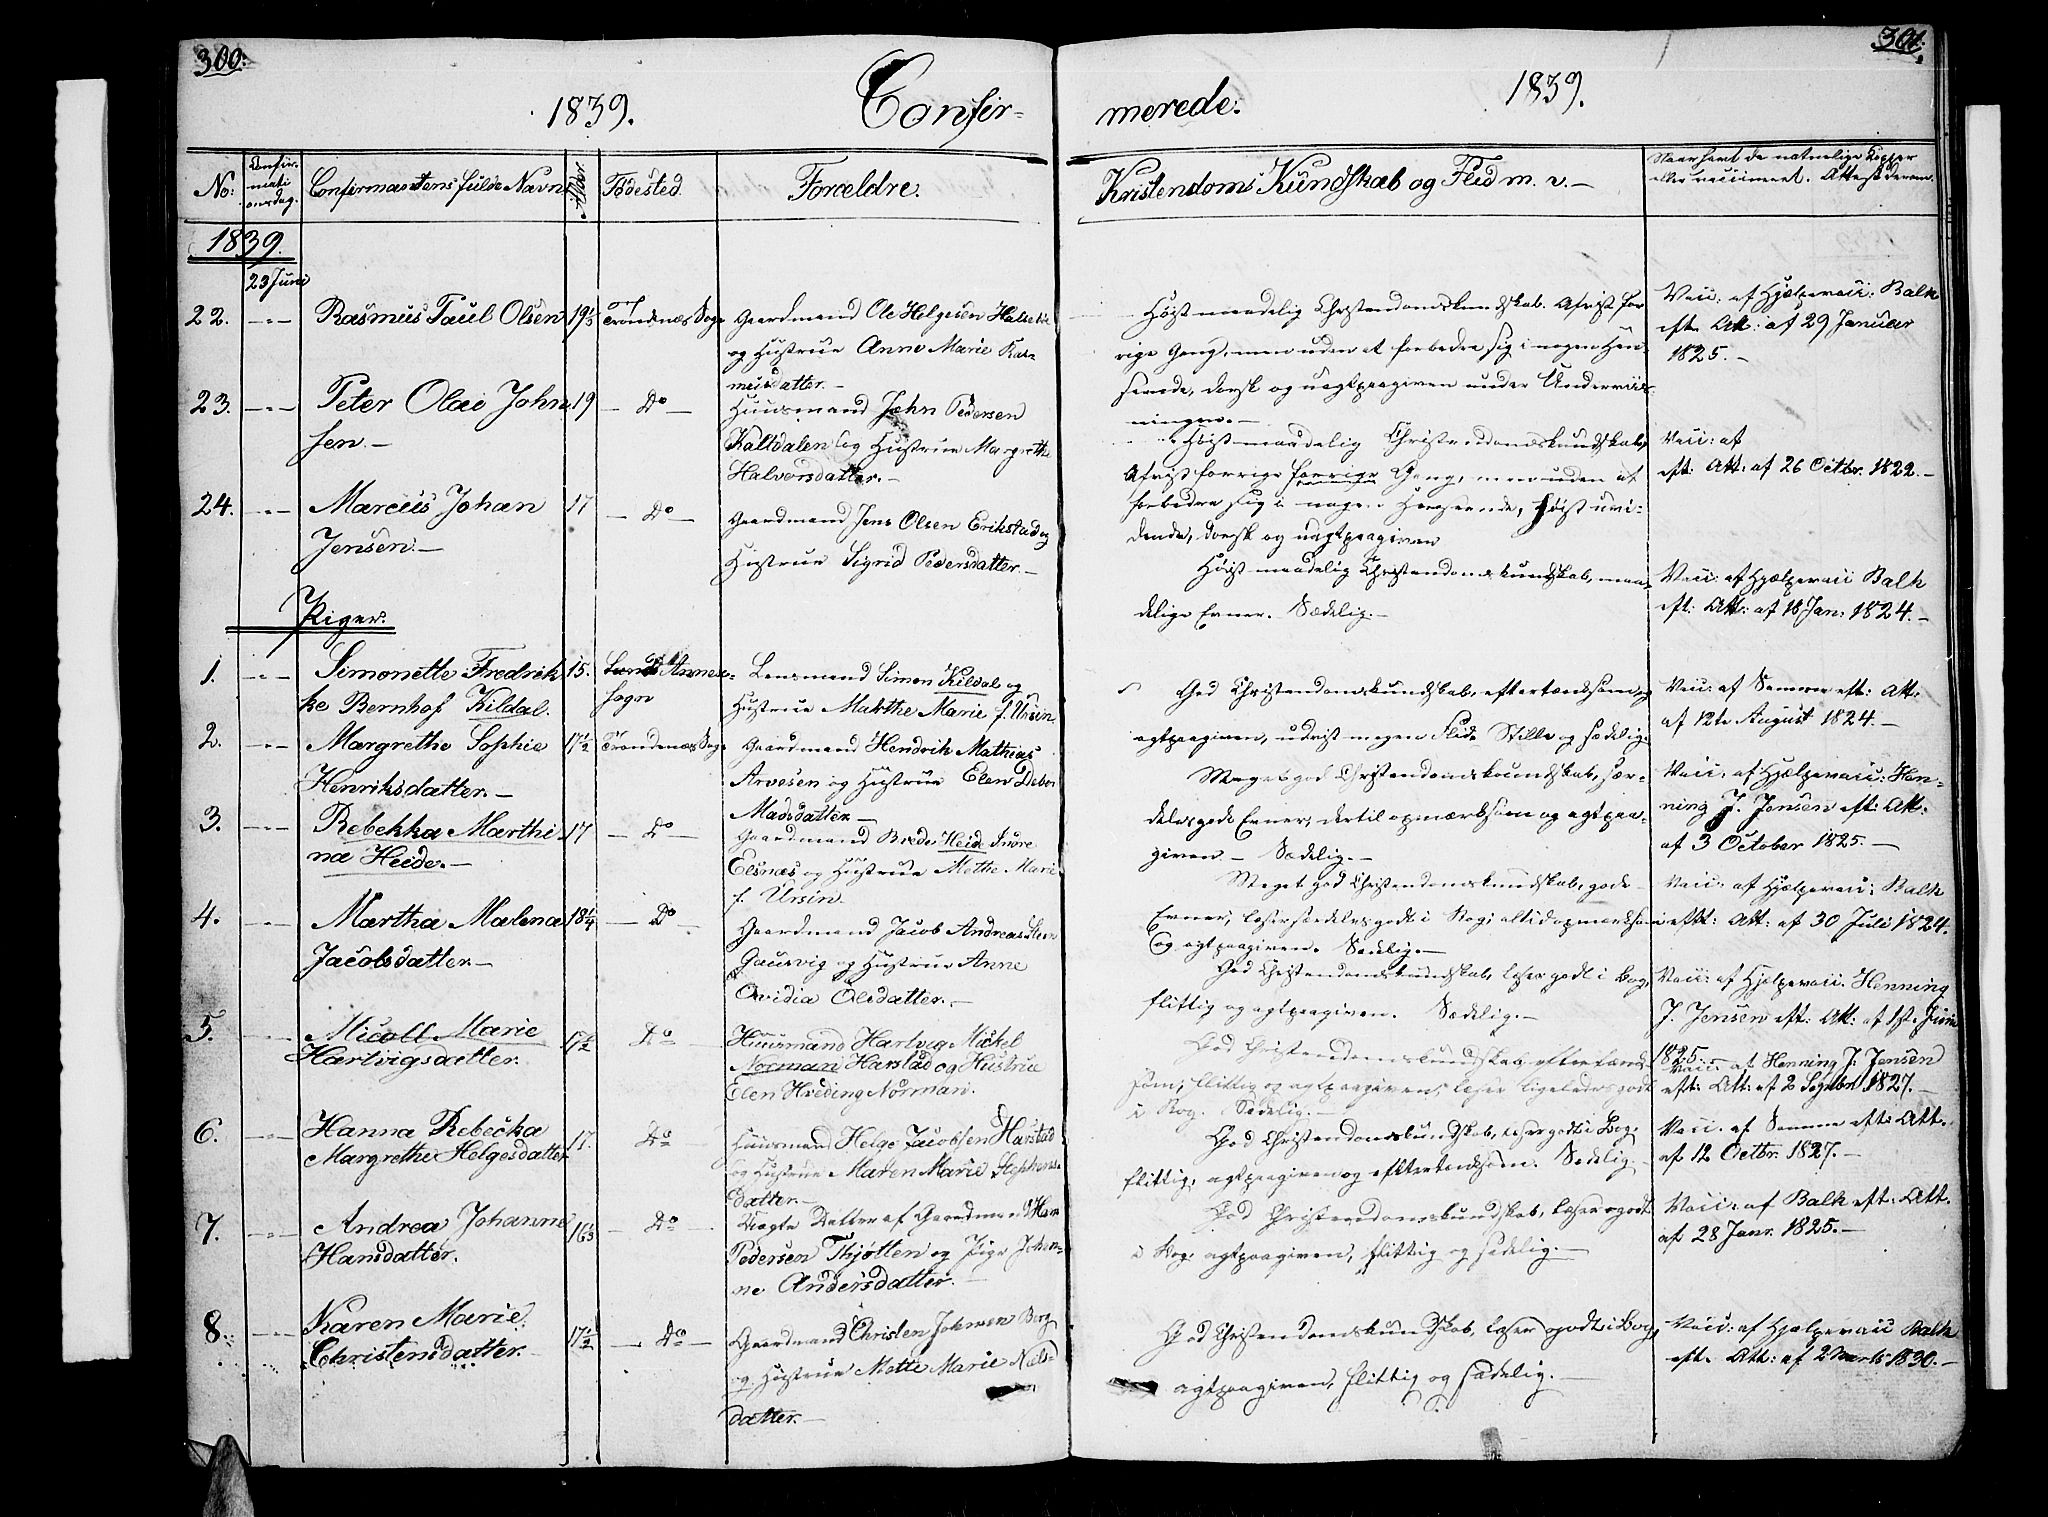 300.
301.
1839.
Confir-
merede.
1839.
No:
Confir-
mati
onsdag.
Confirmantens fulde Navn
Alder.
Fødested.
Forældre.
Kristendoms Kundskab og Flid m. v. -
Naar havt de naturlige Kopper
eller vaccineret. Attest derom.
1839.
23 Juni
22. -"- Rasmus Paul Olsen 19 1/3 Trondenæs Sogn Gaardmand Ole Helgesen
og Hustrue Anne Marie Ras-
musdatter. -
Høist maadelig Christendomskundskab. Afvist for
rige Gang, men uden at forbedre sig i nogen Hen-
seende, dorsk og uagtpaagiven under Underviis
ningen. -
Vacc: af Hjælpevacc: Balk
eft. Att: af 29 Januar
1825. -
23. -"- Peter Olai John 19 - Do -
sen. -
Huusmand John Pedersen
Kaltdalen og Hustrue Margrethe
Halvorsdatter. -
Høist maadelig Christendomskundskab,
Afvist forrige forrige Gang, men uden at
forbedre sig i nogen Henseende, Høist uvi-
dende, dorsk og uagtpaagiven
Vacc: af
eft. Att: af 26 Octbr. 1822. -
24. -"- Marcus Johan 17 - Do -
Jensen. -
Gaardmand Jens Olsen Erikstad og
Hustrue Sigrid Pedersdatter. -
Høist maadelig Christendomskundskab, maa-
delige Evner. Sædelig. -
Vacc: af Hjælpevacc Balk
eft: Att: af 18 Jan: 1824. -
Piger:
1. -"- Simonette Fredrik 15. Annes
ke Bernhof Kildal. Sogn
Lensmand Simon Kildal og
Hustrue Marthe Marie f. Ursin.
God Christendomskundskab, eftertænksom og
agtpaagiven, udvist megen Flid. Stille og sædelig.
Vacc: af Samme eft: Att.
af 12te August 1824. -
2. -"- Margrethe Sophie 17 1/2 Trondenæs Sogn
Henriksdatter. -
Gaardmand Hendrik Mathias
Arvesen og Hustrue Elen Debor
Madsdatter. -
Meget god Christendomskundskab, sær-
deles gode Evner, dertil opmærksom og agtpaa-
given. - Sædelig. -
Vacc: af Hjælpevacc: Hen-
ning J. Jensen eft: Att.
af 3 October 1825. -
3. -"- Rebekka Marthi 17 - Do -
na Heide. -
Gaardmand Brede Heide Indre
Elsnæs og Hustrue Mette Marie
f. Ursin.
Meget god Christendomskundskab, gode
Evner, læser særdeles godt i Bog; altid opmærksom
og agtpaagiven. Sædelig. -
Vacc: af Hjælpevacc: Balk
eft: Att: af 30 Juli 1824.
4. -"- Martha Malena 18 1/4 - Do -
Jacobsdatter. -
Gaardmand Jacob Andreas Steen
Gausvig og Hustrue Anne
Ovidia Olsdatter. -
God Christendomskundskab, læser godt i Bog,
flittig og agtpaagiven. Sædelig. -
Vacc: af Hjælpevacc. Henning
J. Jensen eft: Att: af 1ste Juni
1825. -
5. -"- Nicoll Marie 17 1/2 Do
Hartvigsdatter.
Huusmand Hartvig Mickel
Norman Harstad og Hustrue
Elen Hveding Norman.
God Christendomskundskab, eftertænk-
som, flittig og agtpaagiven, læser ligeledes godt
i Bog. Sædelig. -
Vacc: af Henning J. Jensen
eft: Att: af 2 Septbr 1827. -
6. -"- Hanna Rebecka 17. Do
Margrethe Helgesdatter
Huusmand Helge Jacobsen Harstad
og Hustrue Maren Marie Stephens-
datter. -
God Christendomskundskab, læser godt i Bog,
flittig, agtpaagiven og eftertænksom. Sædelig. -
Vacc. af Samme eft: Att.
af 12 Octbr. 1827. -
7. -"- Andrea Johanne 16 1/3 - Do -
Hansdatter.
Uægte Datter af Gaardmand Hans
Pedersen Thjøtten og Pige Johan-
ne Andersdatter. -
God Christendomskundskab, læser godt
i Bog, agtpaagiven, flittig og sædelig. -
Vacc: af Balk eft: Att.
af 28 Janr. 1825. -
8. -"- Karen Marie 17 1/2 - Do -
Christensdatter. -
Gaardmand Christen Johnsen Berg
og Hustrue Mette Marie Niels-
datter. -
God Christendomskundskab, læser godt i Bog,
agtpaagiven, flittig og sædelig. -
Vacc: af Hjælpevacc Balk
eft. Att: af 2 Marts 1830. -